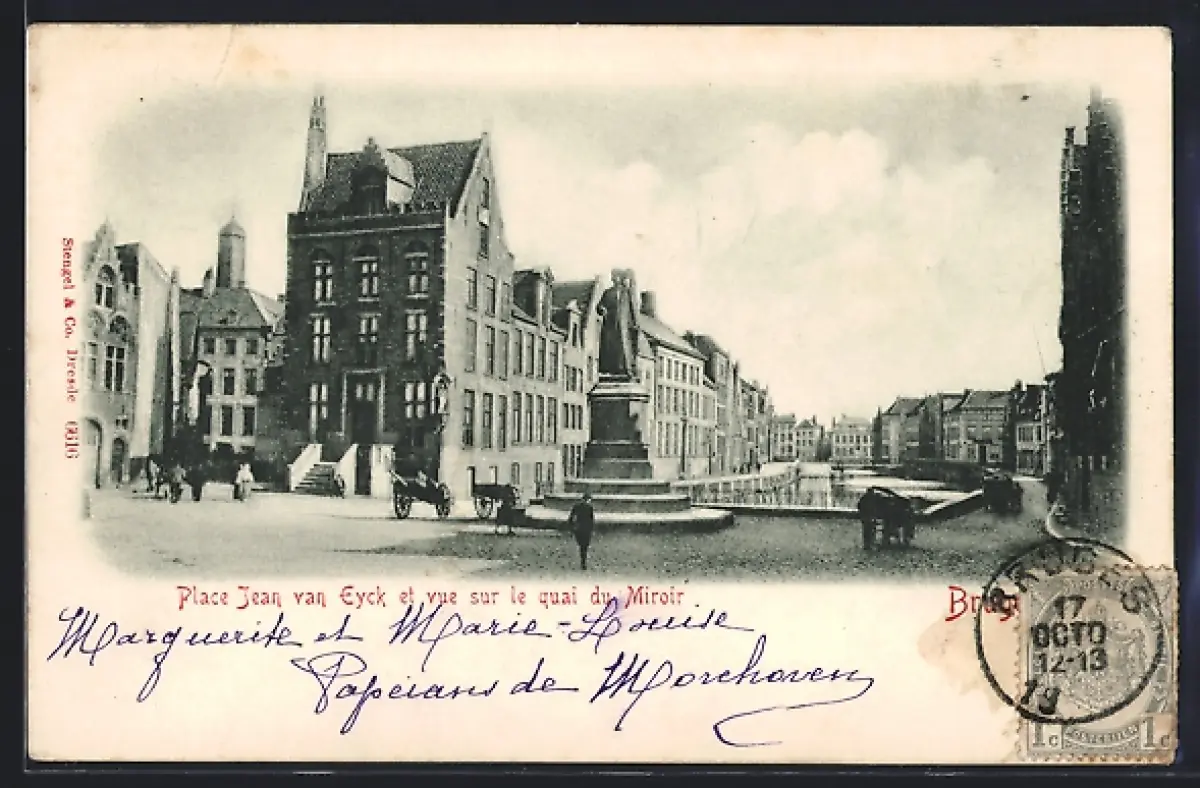 Stengel & Co. Dresde 6616
Place Jean van Eyck et vue sur le quai du Miroir
Marguerite et Marie-Louise
Papeians de Morchoven
BRUGES
17
OCTO
12-13
19
1c 1c